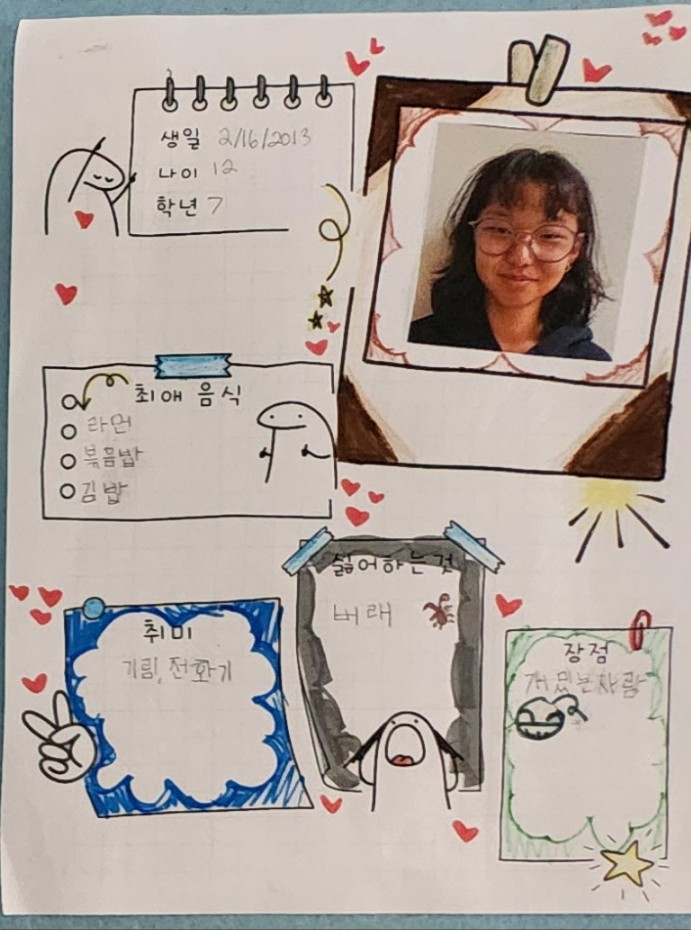 생일 2/16/2013
나이 12
학년 7
최애 음식
라먼
볶음밥
김밥
싫어하는 것
버래
취미
기림, 전화기
장점
재밌는 사람